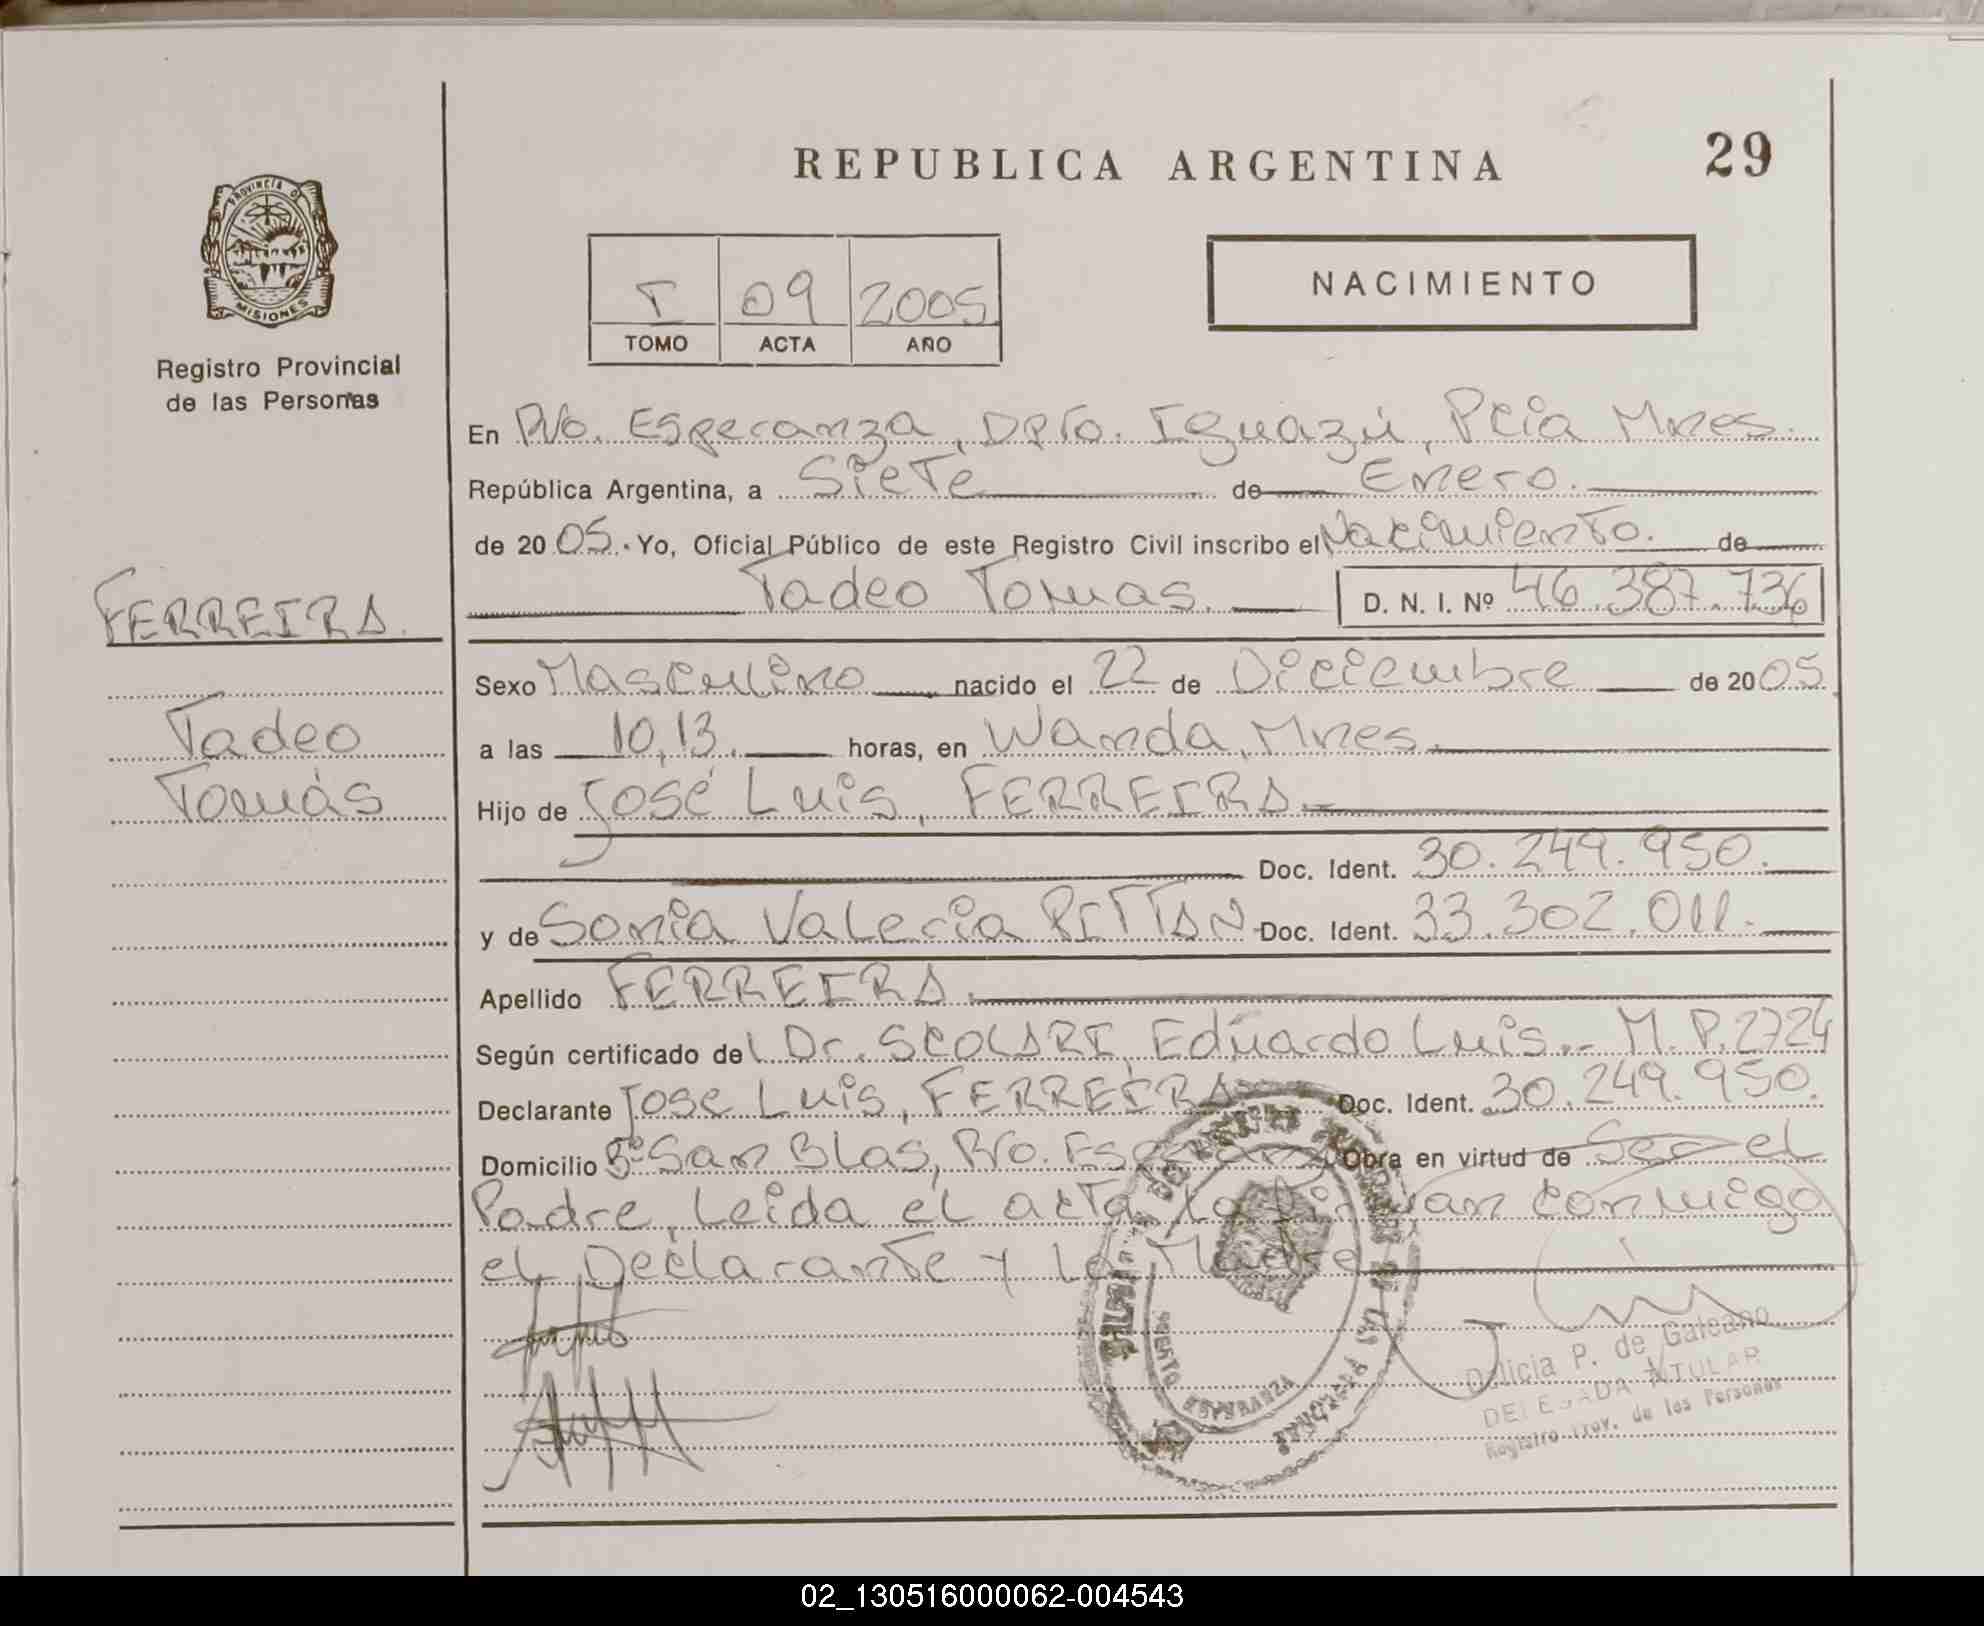 REPUBLICA ARGENTINA
29
PROVINCIA DE
MISIONES
Registro Provincial
de las Personas
I 09 2005
TOMO ACTA AÑO
NACIMIENTO
En Pto. Esperanza, Dpto. Iguazú, Pcia Mnes.
República Argentina, a Siete de Enero.
de 2005. Yo, Oficial Público de este Registro Civil inscribo el Nacimiento. de
Tadeo Tomas. D. N. I. Nº 46.387.736
FERREIRA.
Sexo Masculino nacido el 22 de Diciembre de 2005
Tadeo
a las 10,13. horas, en Wanda, Mnes.
Tomás
Hijo de José Luis, FERREIRA.-
Doc. Ident. 30.249.950.
y de Sonia Valeria PITTAN Doc. Ident. 33.302.011.
Apellido FERREIRA.
Según certificado del Dr. SCOLARI, Eduardo Luis.- M.P.2724
Declarante Jose Luis, FERREIRA Doc. Ident. 30.249.950.
Domicilio Bº San Blas, Pto. Esperanza Obra en virtud de Ser el
Padre, Leida el acta, la firman conmigo
el Declarante y la Madre
PUERTO ESPERANZA
LAS PERSONAS
Delicia P. de Galeano
DELEGADA TITULAR
Registro Prov. de las Personas
02_130516000062-004543